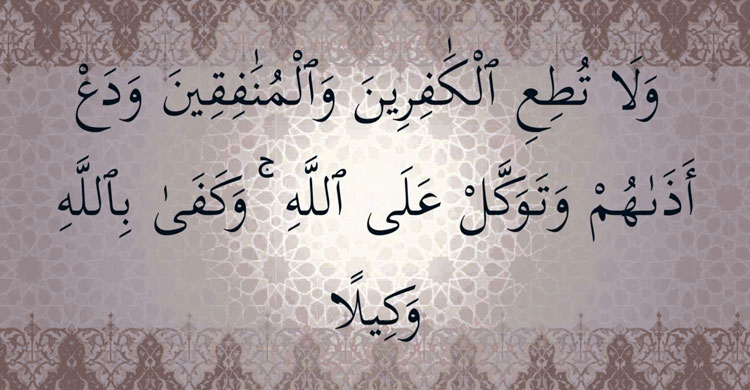 وَلَا تُطِعِ ٱلْكَٰفِرِينَ وَٱلْمُنَٰفِقِينَ وَدَعْ
أَذَىٰهُمْ وَتَوَكَّلْ عَلَى ٱللَّهِ ۚ وَكَفَىٰ بِٱللَّهِ
وَكِيلًا